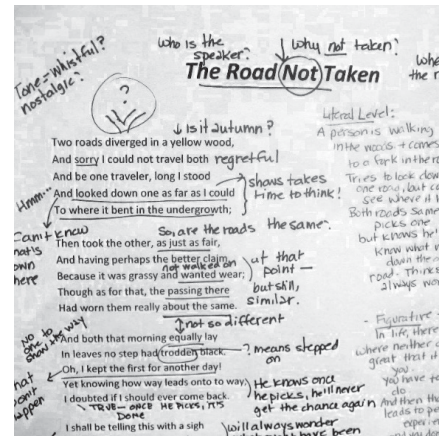 Tone = whistful?
nostalgic?
who is the
speaker?
why not taken?
The Road Not Taken
?
Is it autumn?
Two roads diverged in a yellow wood,
And sorry I could not travel both
regretful
And be one traveler, long I stood
Hmm...
And looked down one as far as I could
To where it bent in the undergrowth;
shows takes
time to think!
So, are the roads the same?
Then took the other, as just as fair,
And having perhaps the better claim,
not walked on
Because it was grassy and wanted wear;
Though as for that, the passing there
Had worn them really about the same.
at that
point —
but still,
similar.
not so different
No one to
show the way
And both that morning equally lay
In leaves no step had trodden black.
? means stepped
on
Oh, I kept the first for another day!
Yet knowing how way leads onto to way,
I doubted if I should ever come back.
TRUE - ONCE HE PICKS, IT'S
DONE
He knows once
he picks, he'll never
get the chance again
I shall be telling this with a sigh
will always wonder
have been
Literal Level:
A person is walking
in the woods + comes
to a fork in the
Tries to look down
one road, but
see where it
Both roads
picks one
but knows he
know what
down the
road. Thinks
always
- Figurative
In life, there
where neither
great that
you
you have to
do
And then
leads to